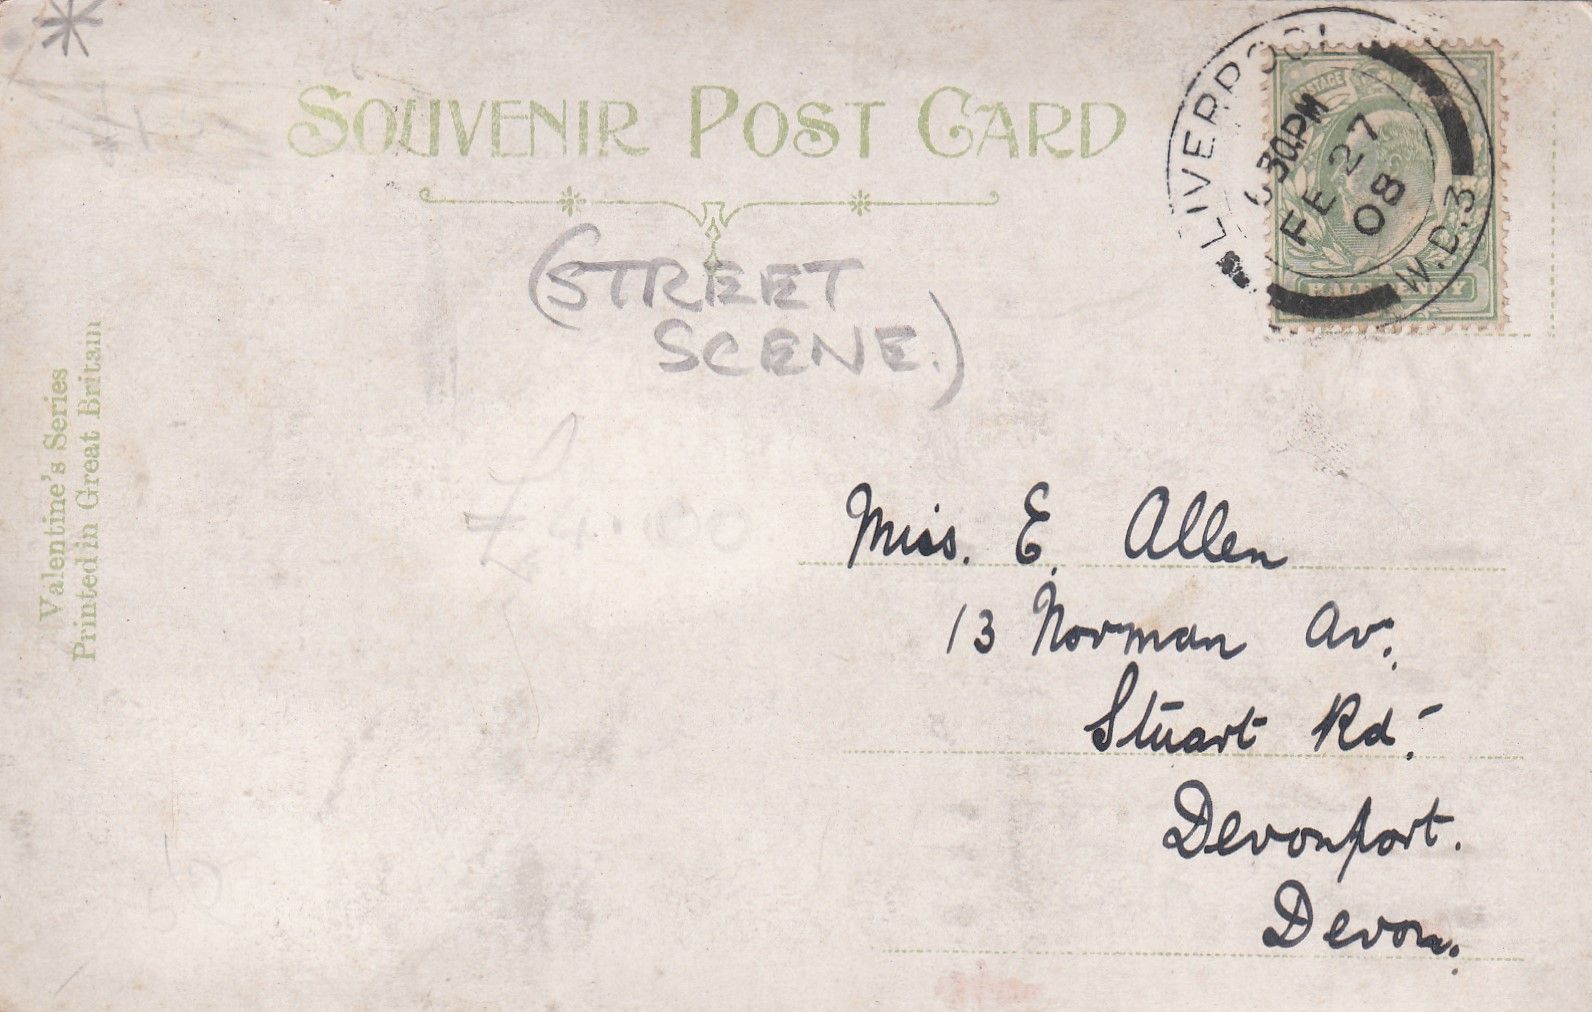 SOUVENIR POST CARD
LIVERPOOL
W.D.3
6 30PM
FE 27
08
HALFPENNY
(STREET
SCENE.)
£4.00
Valentine's Series
Printed in Great Britain
Miss. E. Allen
13 Norman Av.
Stuart Rd.
Devonport.
Devon.